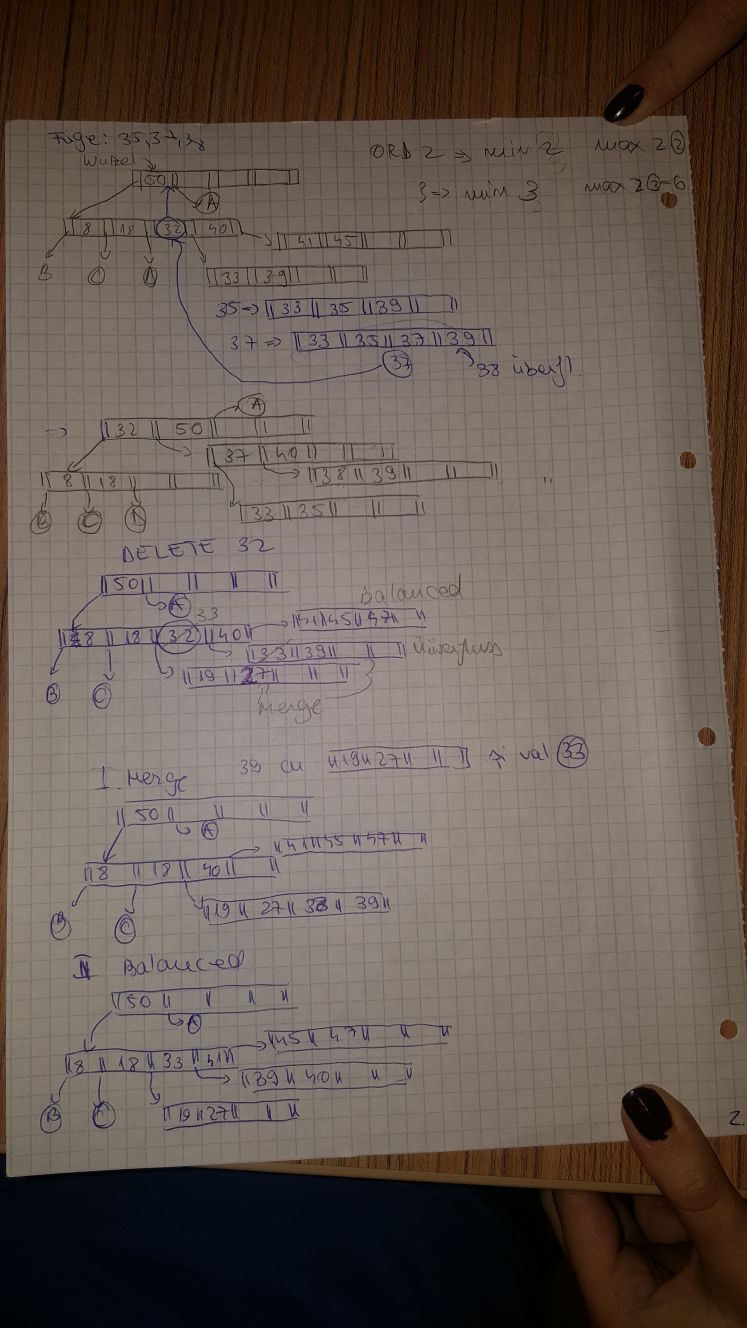 Füge: 35,37,38
ORD 2 => min 2 max 2②
Wurzel
3 => min 3 max 2③=6
50
A
8 18 32 40
41 45
B C D
33 39
35 => 33 35 39
37 => 33 35 37 39
37
38 überfl.
A
=> 32 50
37 40
38 39 "
8 18
B C D
33 35
DELETE 32
50
A
Balanced
33
8 18 32 40
41 45 47
33 39 Überfluss
19 27
B C
Merge
I. Merge 39 cu 19 27 și val 33
50
A
41 45 47
8 18 40
19 27 33 39
B C
II Balanced
50
A
45 47
8 18 33 41
39 40
B C 19 27
2.